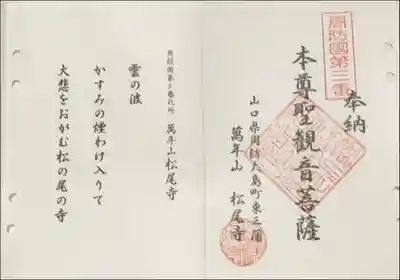 周防國第三番
奉納
本尊聖観音菩薩
山口県周防大島町東三蒲
萬年山 松尾寺
萬年山松尾寺
雲の波
かすみの煙わけ入りて
大悲をおがむ松の尾の寺